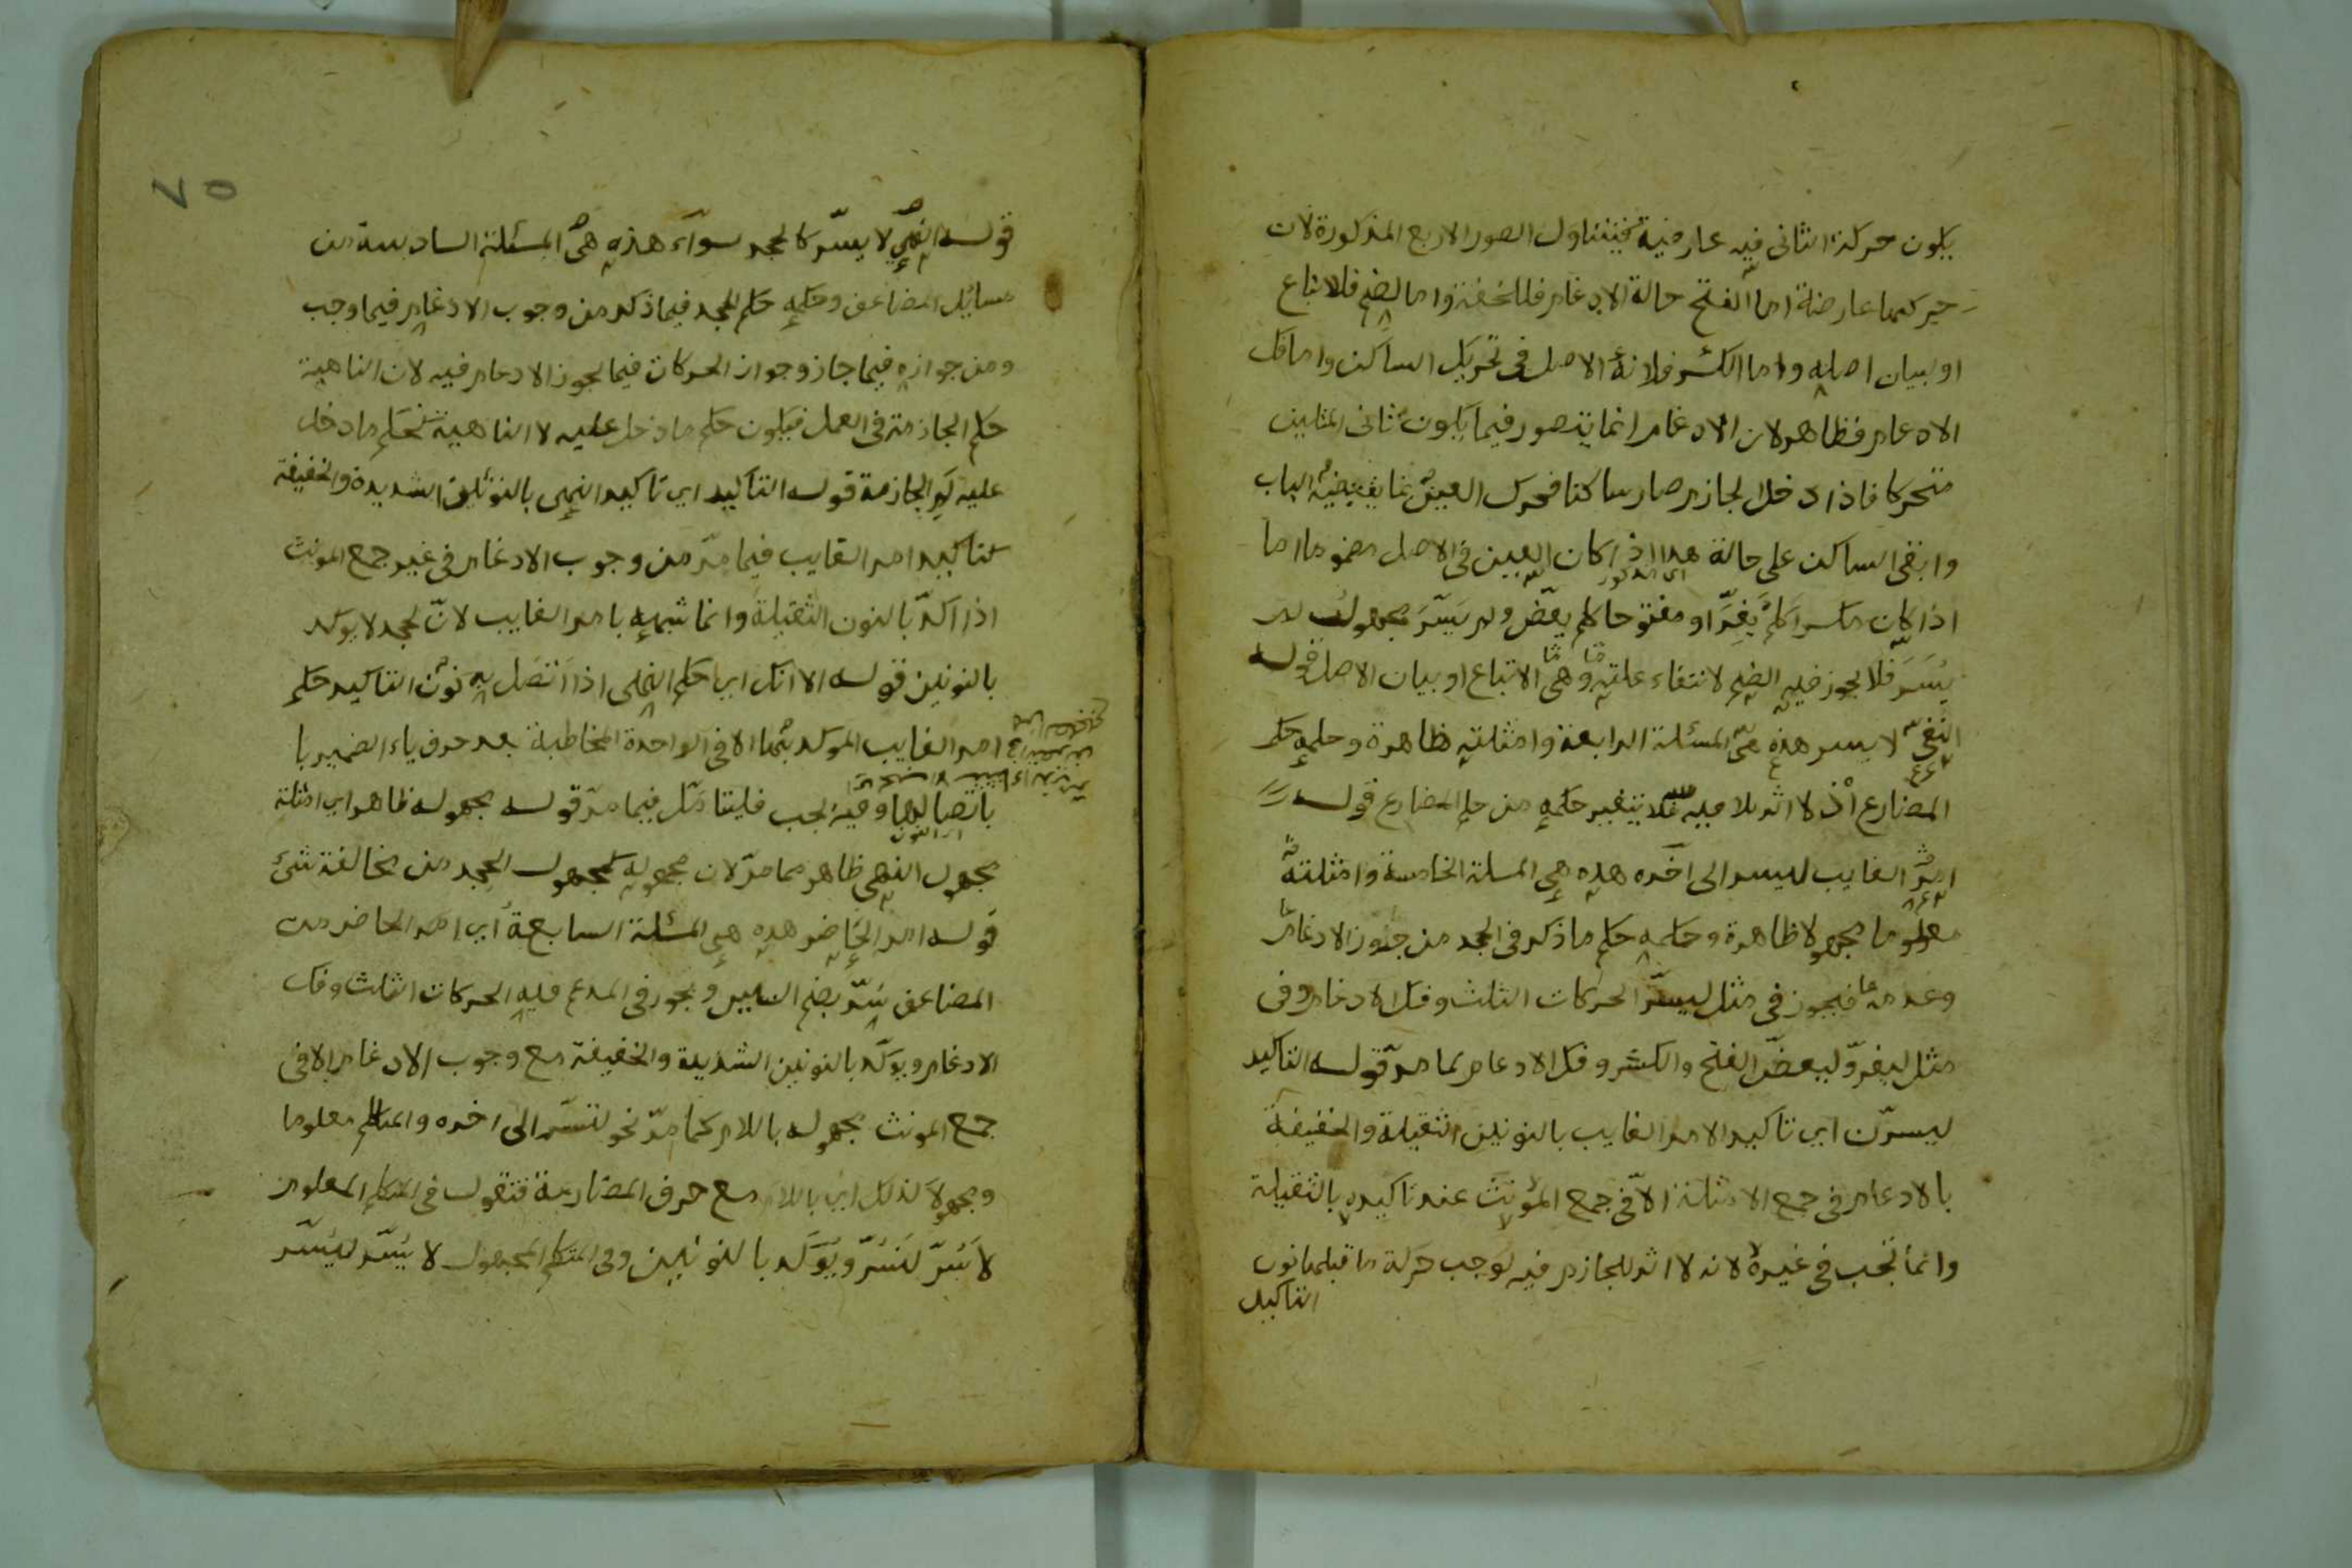 يكون حركة الثاني فيه عارضية فيتناول الصور الاربع المذكورة لان
حركتها عارضة اما الفتح حالة الادغام فللخفة واما الضم فللاتباع
او لبيان اصله واما الكسر فلانه الاصل في تحريك الساكن واما فك
الادغام فظاهر لان الادغام انما يتصور فيما يكون ثاني المثلين
متحركا فاذا دخل الجازم صار ساكنا فحرك العين بما يقتضيه الباب
وابقى الساكن على حالة هذا اذا كان العين في الاصل مضموما اما
اذا كان مكسرا كلم يفرّ او مفتوحا كلم يعضّ ولم يسرّ مجهول لم
يسرر فلا يجوز فيه الضم لانتفاء علته وهي الاتباع او بيان الاصل قوله
النفي لا يسر هذه هي المسئلة الرابعة وامثلته ظاهرة وحكمه حكم
المضارع اذ لا اثر للا فيه فلا يتغير حكمه من حكم المضارع قوله
امر الغايب ليسر الى آخره هذه هي المسئلة الخامسة وامثلته
معلوما مجهولا ظاهرة وحكمه حكم ما ذكر في الجحد من جوز الادغام
وعدمه فيجوز في مثل ليسرّ الحركات الثلث وفك الادغام وفي
مثل ليفرّ وليعضّ الفتح والكسر وفك الادغام لما مرّ قوله التاكيد
ليسرّن اي تاكيد الامر الغايب بالنونين الثقيلة والخفيفة
بالادغام في جمع الامثلة الا في جمع المؤنث عند تاكيده بالثقيلة
وانما تجب في غيره لانه لا اثر للجازم فيه لوجب حركة ما قبلها نون
التاكيد
٧٥
قوله النهي لا يسرّ كالجحد سواء هذه هي المسئلة السادسة من
مسائل المضاعف وحكمه حكم الجحد فيما ذكر من وجوب الادغام فيما وجب
ومن جوازه فيما جاز وجواز الحركات فيما يجوز الادغام فيه لان الناهية
حكم الجازمة في العمل فيكون حكم ما دخل عليه لا الناهية كحكم ما دخل
عليه لم الجازمة قوله التاكيد اي تاكيد النهي بالنونين الشديدة والخفيفة
كتاكيد امر الغايب فيما مرّ من وجوب الادغام في غير جمع المونث
اذا اكدّ بالنون الثقيلة وانما شبهه بامر الغايب لانّ لجحد لا يوكد
بالنونين قوله الا انك اي حكم النهي اذا اتصل به نون التاكيد حكم
امر الغايب الموكد بهما الا في الواحدة المخاطبة بعد حرف ياء الضمير با
باتصالها وفيه لجب فليتامّل فيما مرّ قوله مجهوله ظاهر اي امثلة
مجهول النهي ظاهر مما مرّ لان مجهوله كمجهول الجحد من مخالفة شئ
قوله امر الحاضر هذه هي المسئلة السابعة اي امر الحاضر من
المضاعف سرّ بضم السين ويجوز في المدغم فيه الحركات الثلث وفك
الادغام ويوكّد بالنونين الشديدة والخفيفة مع وجوب الادغام الا في
جمع المونث مجهوله باللام كما مرّ نحو لتسرّ الى اخره والمتكلم معلوما
ومجهولا كذلك اي باللام مع حرف المضارعة فتقول في المتكلم المعلوم
لاسُرّ لنسُرّ ويوكّد بالنونين وفي المتكلم المجهول لا يسّر ليسّر